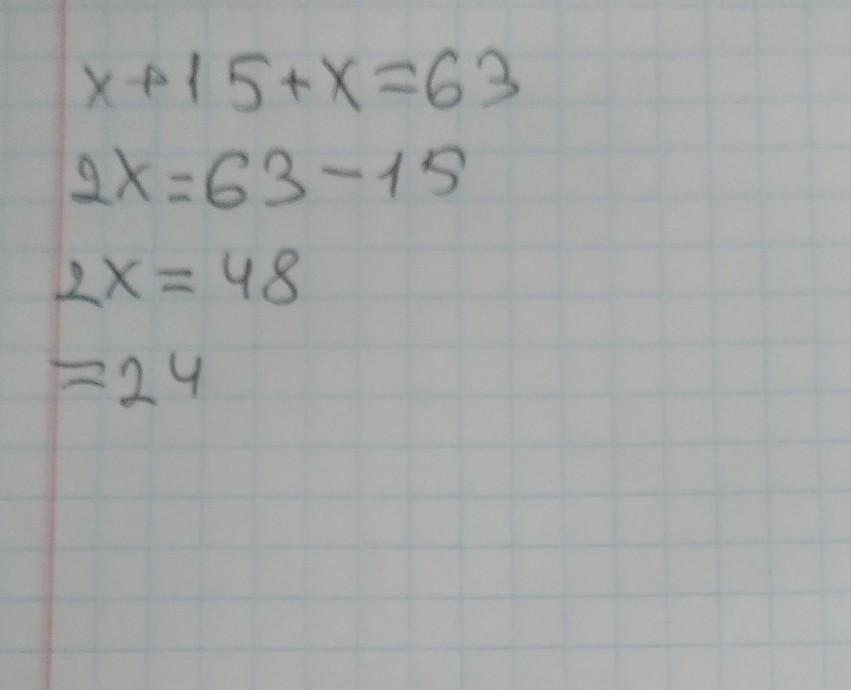 x+15+x=63
2x=63-15
2x=48
=24